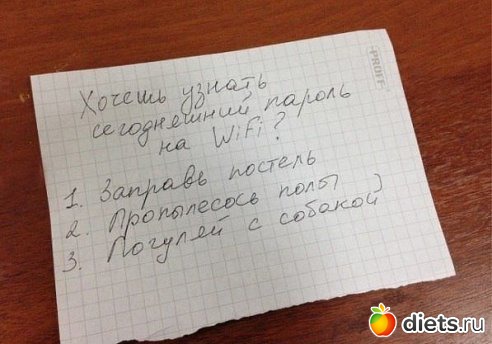 Хочешь узнать
сегодняшний пароль
на WiFi?
1. Заправь постель
2. Пропылесось полы
3. Погуляй с собакой
PROFF
diets.ru